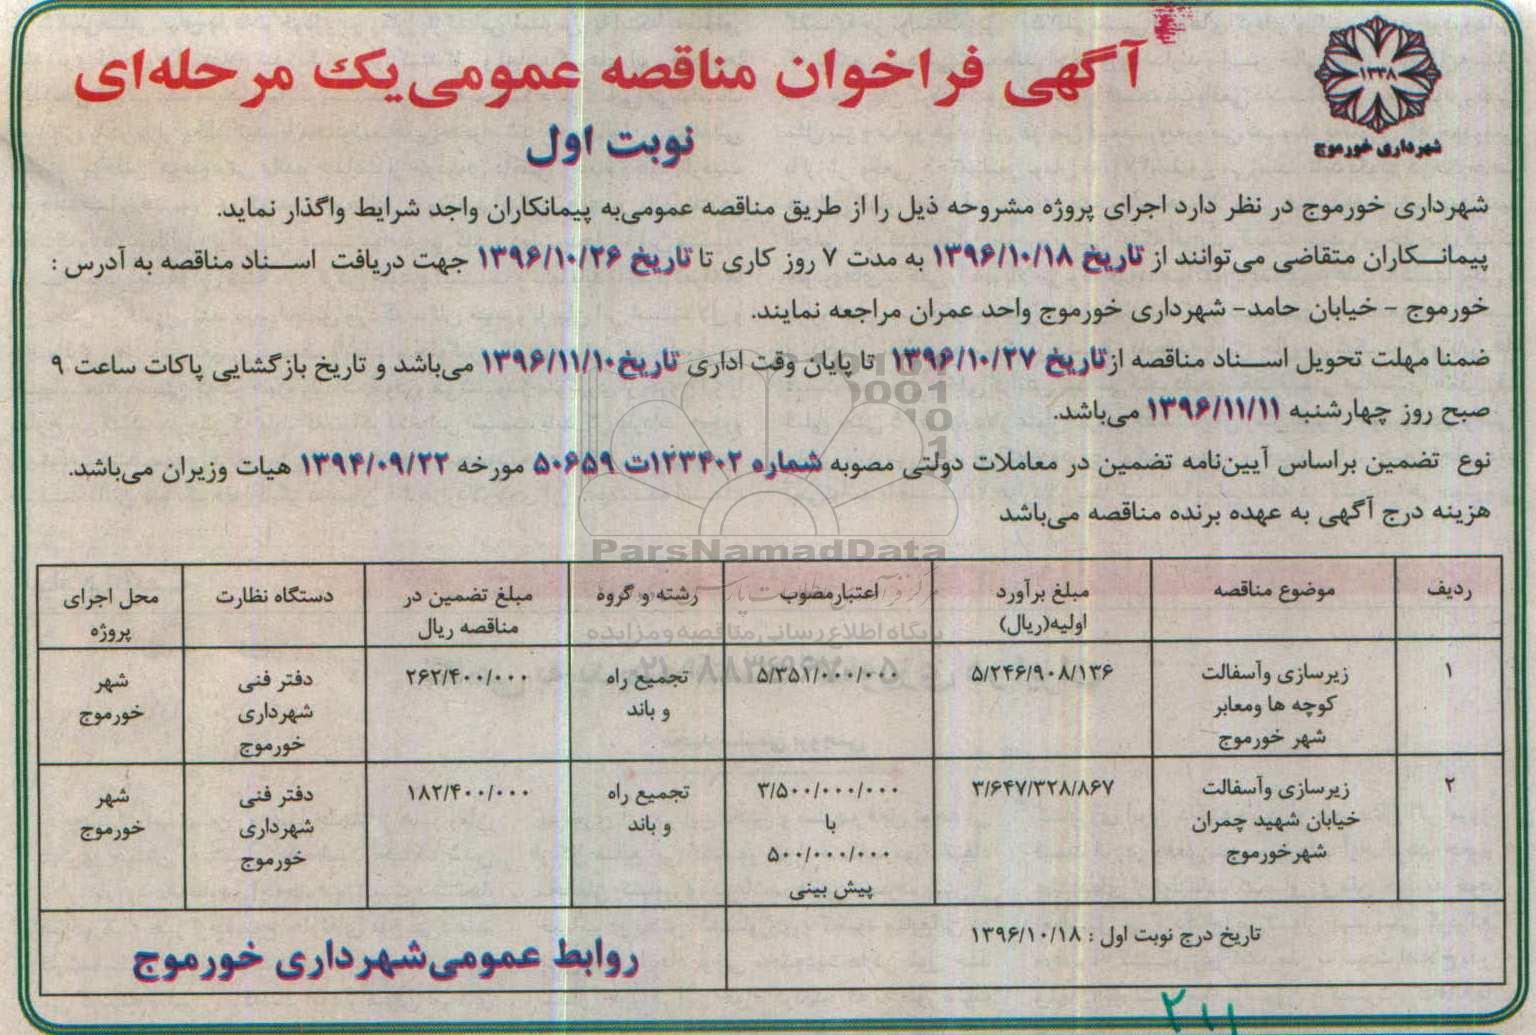 آگهی فراخوان مناقصه عمومی یک مرحله‌ای
۱۳۳۸
شهرداری خورموج
نوبت اول
شهرداری خورموج در نظر دارد اجرای پروژه مشروحه ذیل را از طریق مناقصه عمومی‌به پیمانکاران واجد شرایط واگذار نماید.
پیمانکاران متقاضی می‌توانند از تاریخ ۱۳۹۶/۱۰/۱۸ به مدت ۷ روز کاری تا تاریخ ۱۳۹۶/۱۰/۲۶ جهت دریافت اسناد مناقصه به آدرس :
خورموج - خیابان حامد- شهرداری خورموج واحد عمران مراجعه نمایند.
ضمنا مهلت تحویل اسناد مناقصه از تاریخ ۱۳۹۶/۱۰/۲۷ تا پایان وقت اداری تاریخ ۱۳۹۶/۱۱/۱۰ می‌باشد و تاریخ بازگشایی پاکات ساعت ۹
صبح روز چهارشنبه ۱۳۹۶/۱۱/۱۱ می‌باشد.
نوع تضمین براساس آیین‌نامه تضمین در معاملات دولتی مصوبه شماره ۱۲۳۴۰۲ت ۵۰۶۵۹ مورخه ۱۳۹۴/۰۹/۲۲ هیات وزیران می‌باشد.
هزینه درج آگهی به عهده برنده مناقصه می‌باشد
ParsNamadData
پایگاه اطلاع رسانی مناقصه و مزایده
ردیف موضوع مناقصه مبلغ برآورد اعتبارمصوب رشته و گروه مبلغ تضمین در دستگاه نظارت محل اجرای
اولیه(ریال) مناقصه ریال پروژه
۱ زیرسازی وآسفالت ۵/۲۴۶/۹۰۸/۱۳۶ ۵/۳۵۱/۰۰۰/۰۰۰ تجمیع راه ۲۶۲/۴۰۰/۰۰۰ دفتر فنی شهر
کوچه ها ومعابر و باند شهرداری خورموج
شهر خورموج خورموج
۲ زیرسازی وآسفالت ۳/۶۴۷/۳۲۸/۸۶۷ ۳/۵۰۰/۰۰۰/۰۰۰ تجمیع راه ۱۸۲/۴۰۰/۰۰۰ دفتر فنی شهر
خیابان شهید چمران با و باند شهرداری خورموج
شهرخورموج ۵۰۰/۰۰۰/۰۰۰ خورموج
پیش بینی
تاریخ درج نوبت اول : ۱۳۹۶/۱۰/۱۸
روابط عمومی‌شهرداری خورموج